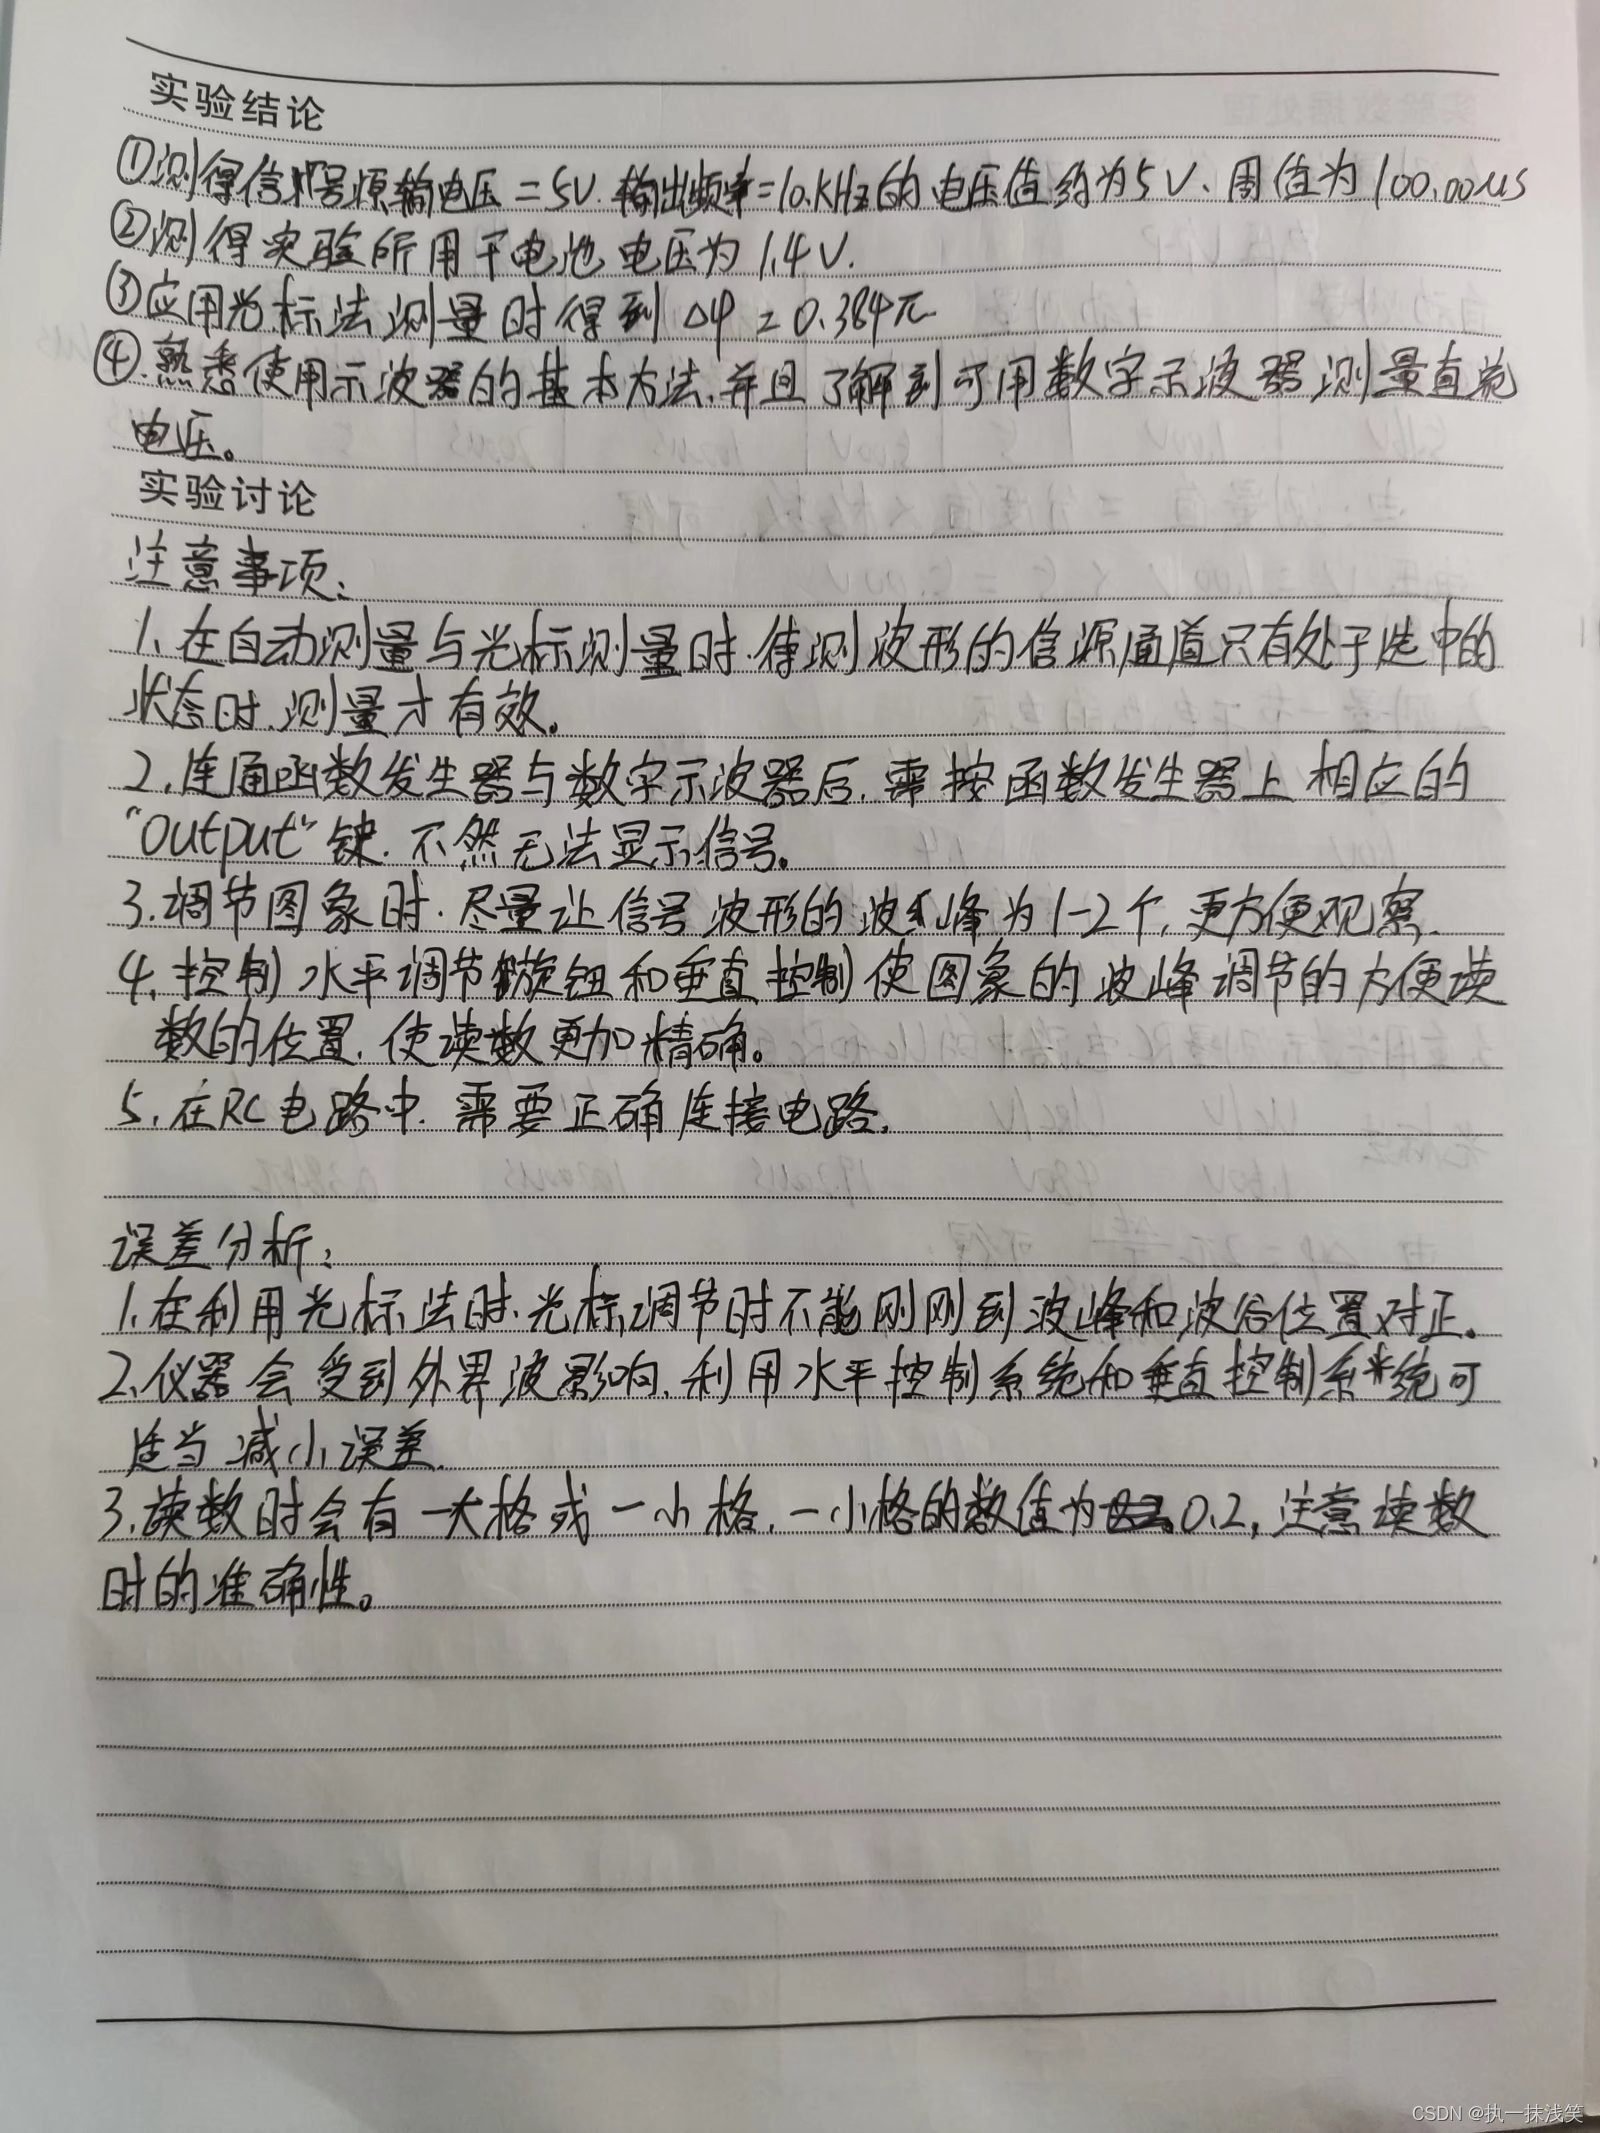 实验结论
①测得信号源输电压=5V.输出频率=10.KHz的电压值约为5V、周值为100.00us
②测得实验所用干电池电压为1.4V.
③应用光标法测量时得到△φ=0.384π
④.熟悉使用示波器的基本方法,并且了解到可用数字示波器测量直流
电压。
实验讨论
注意事项:
1、在自动测量与光标测量时.待测波形的信源通道只有处于选中的
状态时.测量才有效。
2.连通函数发生器与数字示波器后.需按函数发生器上相应的
"output"键.不然无法显示信号。
3.调节图象时.尽量让信号波形的波峰为1-2个,更方便观察.
4.控制水平调节旋钮和垂直控制使图象的波峰调节的方便读
数的位置.使读数更加精确。
5.在RC电路中.需要正确连接电路.
误差分析:
1.在利用光标法时.光标调节时不能刚刚到波峰和波谷位置对正.
2.仪器会受到外界波影响.利用水平控制系统和垂直控制系统可
适当减小误差.
3.读数时会有一大格或一小格.一小格的数值为0.2,注意读数
时的准确性。
CSDN @执一抹浅笑